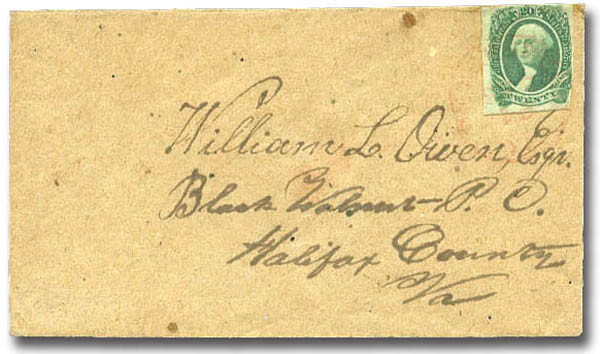 20
TWENTY
William L. Owen, Esqr.
Black Walnut P. O.
Halifax County
Va